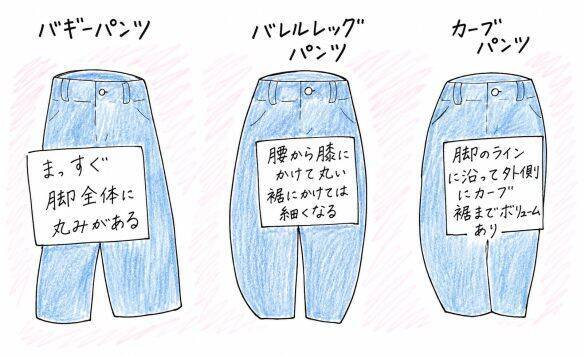 バギーパンツ
バレルレッグ
パンツ
カーブ
パンツ
まっすぐ
脚全体に
丸みがある
腰から膝に
かけて丸い
裾にかけては
細くなる
脚のライン
に沿って外側
にカーブ
裾までボリューム
あり